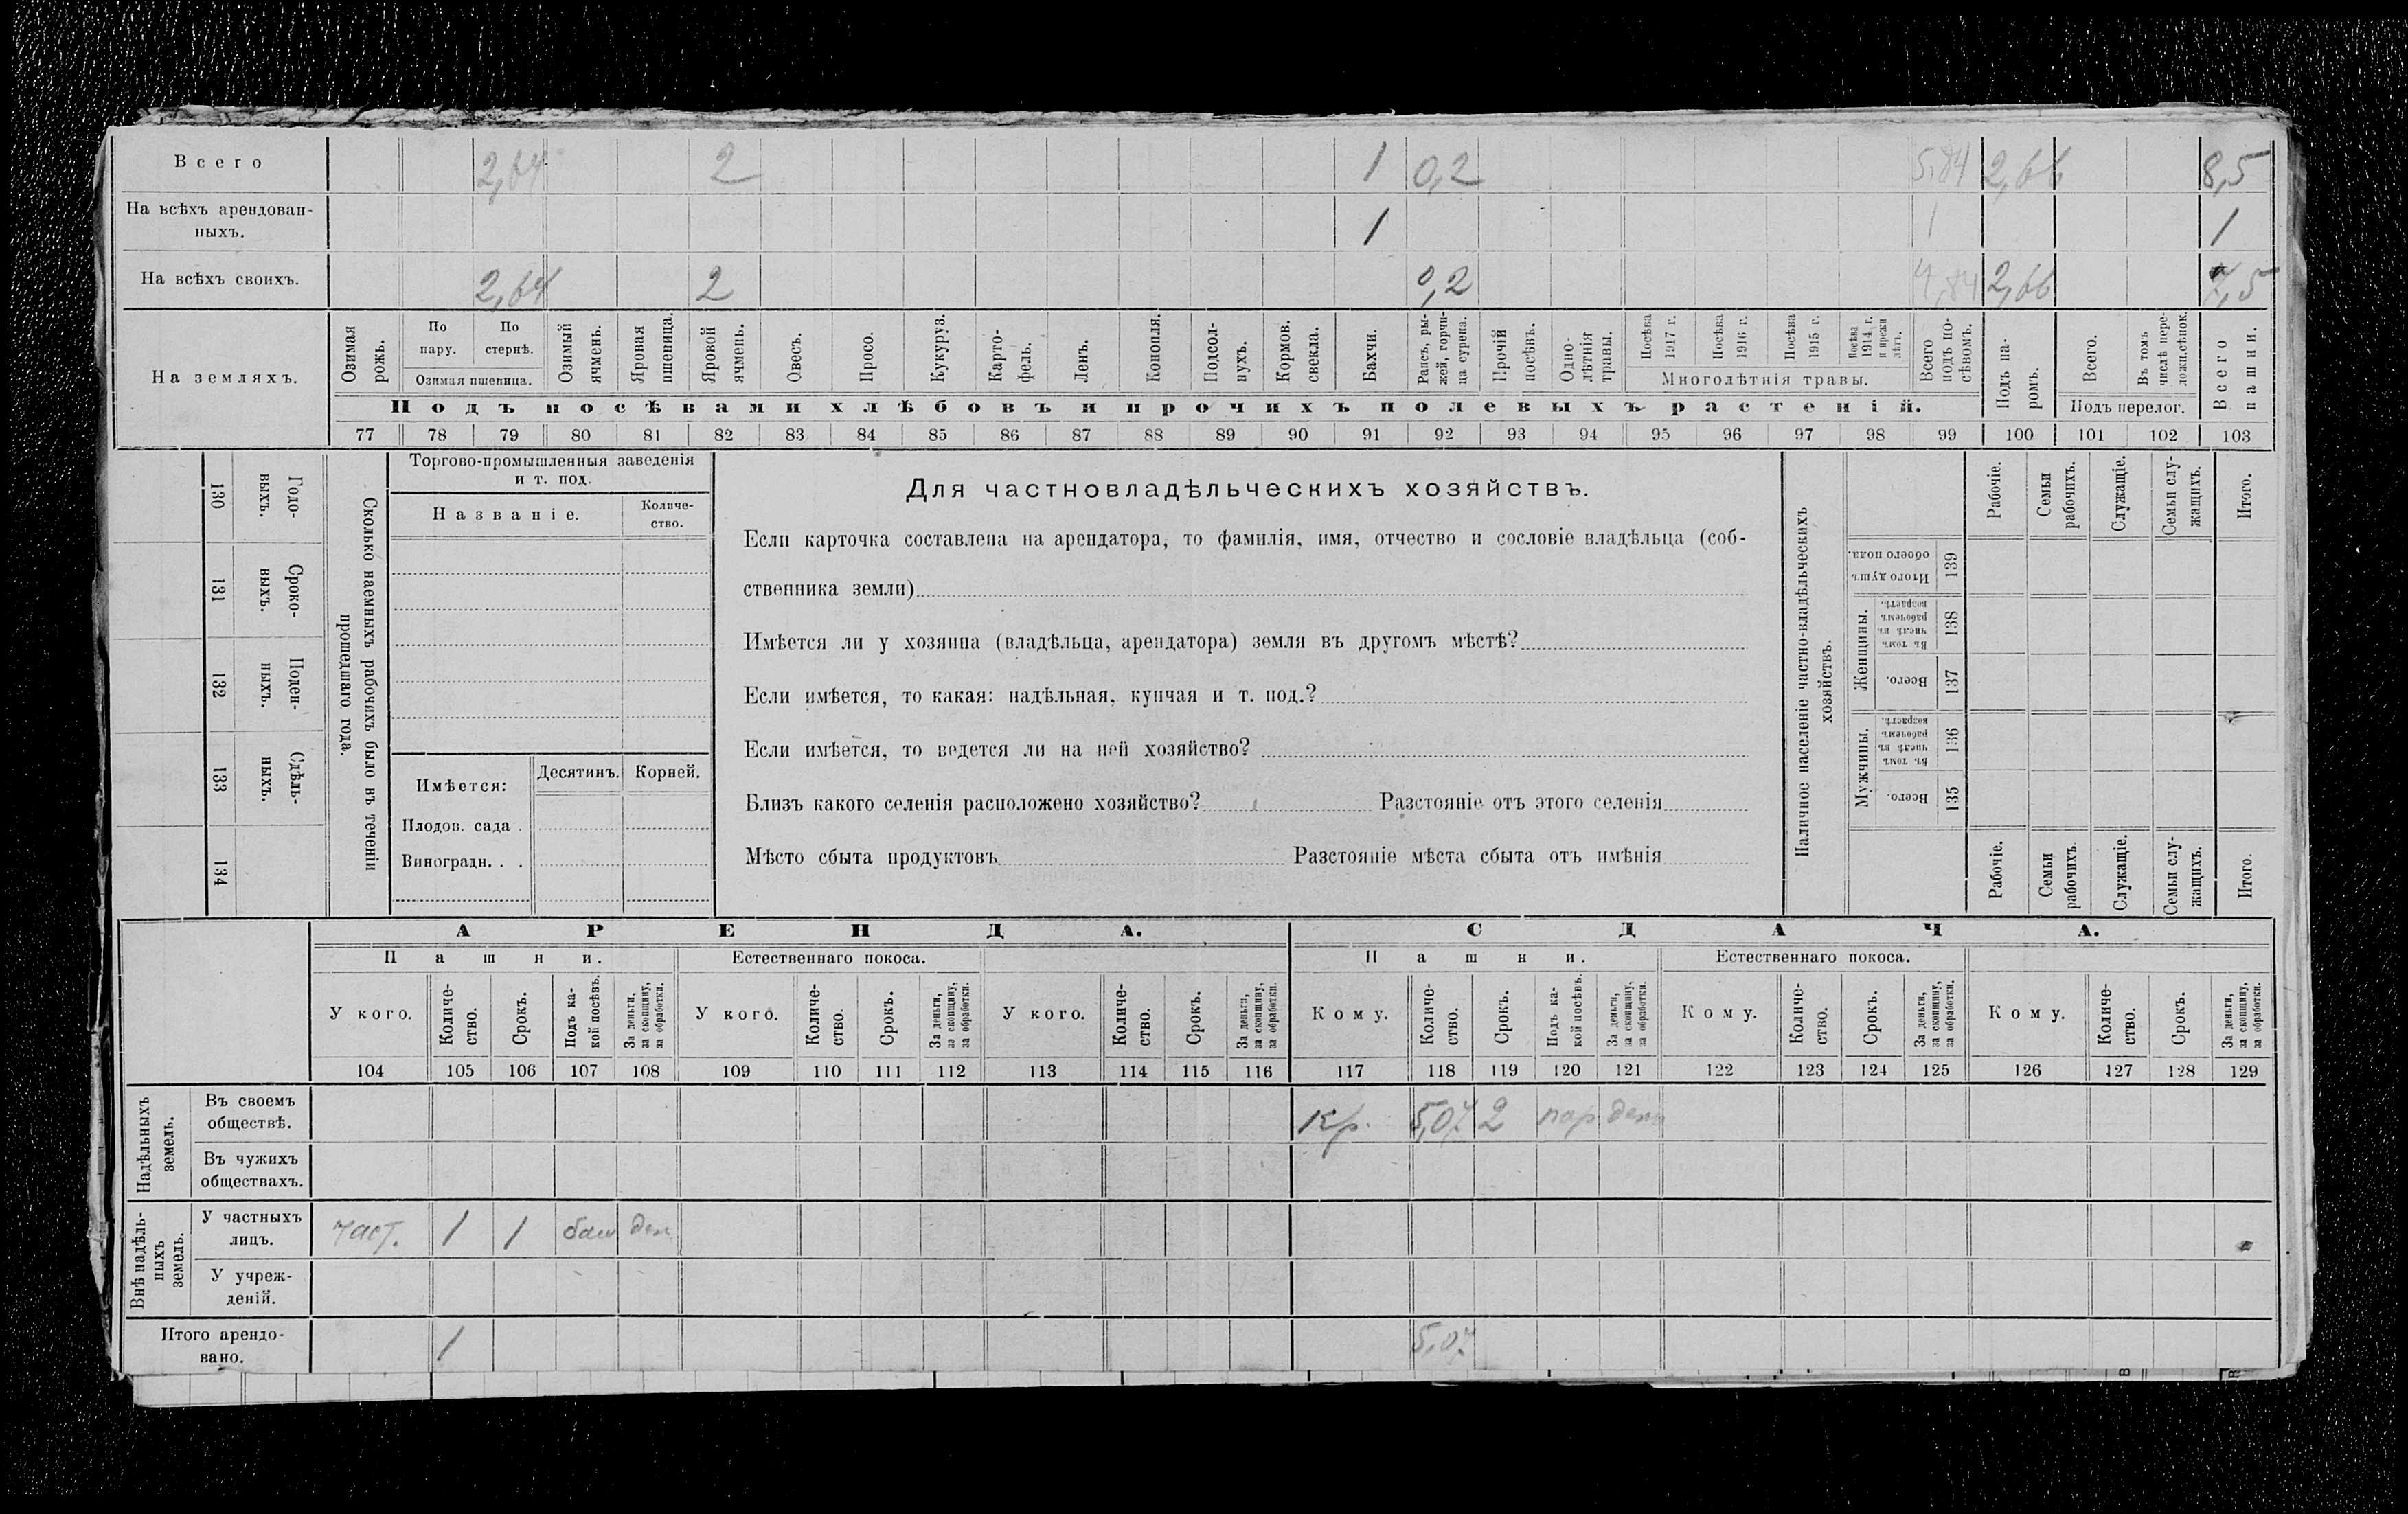 Всего 2,64 2 1 0,2 5,84 2,66 8,5
На всѣхъ арендован-
ныхъ. 1 1 1
На всѣхъ своихъ. 2,64 2 0,2 4,84 2,66 7,5
На земляхъ.
Озимая рожь.
По пару.
По стернѣ.
Озимая пшеница.
Озимый ячмень.
Яровая пшеница.
Яровой ячмень.
Овесъ.
Просо.
Кукуруз.
Карто-
фель.
Ленъ.
Конопля.
Подсол-
нухъ.
Кормов. свекла.
Бахчи.
Рапсъ, ры-
жей, горчи-
ца сурепа.
Прочій посѣвъ.
Одно-
лѣтнія травы.
Посѣва 1917 г.
Посѣва 1916 г.
Посѣва 1915 г.
Посѣва 1914 г. и прежн лѣтъ.
Многолѣтнія травы.
Всего подъ по-
сѣвомъ.
Подъ па-
ромъ.
Всего.
Въ томъ числѣ пере-
ложн.сѣнок.
Подъ перелог.
Всего пашни.
Подъ посѣвами хлѣбовъ и прочихъ полевыхъ растеній.
77 78 79 80 81 82 83 84 85 86 87 88 89 90 91 92 93 94 95 96 97 98 99 100 101 102 103
Годо-
выхъ.
130
Сроко-
выхъ.
131
Поден-
ныхъ.
132
Сдѣль-
ныхъ.
133
134
Сколько наемныхъ рабочихъ было въ теченіи
прошедшаго года.
Торгово-промышленныя заведенія
и т. под.
Названіе.
Количе-
ство.
Имѣется:
Десятинъ.
Корней.
Плодов. сада .
Виноградн. . .
Для частновладѣльческихъ хозяйствъ.
Если карточка составлена на арендатора, то фамилія, имя, отчество и сословіе владѣльца (соб-
ственника земли)
Имѣется ли у хозяина (владѣльца, арендатора) земля въ другомъ мѣстѣ?
Если имѣется, то какая: надѣльная, купчая и т. под.?
Если имѣется, то ведется ли на ней хозяйство?
Близъ какого селенія расположено хозяйство? Разстояніе отъ этого селенія
Мѣсто сбыта продуктовъ Разстояніе мѣста сбыта отъ имѣнія
Наличное населеніе частно-владѣльческихъ
хозяйствъ.
Рабочіе.
Семьи рабочихъ.
Служащіе.
Семьи слу-
жащихъ.
Итого.
Итого душъ обоего пола.
139
Женщины.
Въ томъ числѣ въ рабочемъ возрастѣ.
138
Всего.
137
Мужчины.
Въ томъ числѣ въ рабочемъ возрастѣ.
136
Всего.
135
Рабочіе.
Семьи рабочихъ.
Служащіе.
Семьи слу-
жащихъ.
Итого.
АРЕНДА. СДАЧА.
Пашни. Естественнаго покоса. Пашни. Естественнаго покоса.
У кого.
Количе-
ство.
Срокъ.
Подъ ка-
кой посѣвъ.
За деньги,
за скопщину,
за обработки.
У кого.
Количе-
ство.
Срокъ.
За деньги,
за скопщину,
за обработки.
У кого.
Количе-
ство.
Срокъ.
За деньги,
за скопщину,
за обработки.
Кому.
Количе-
ство.
Срокъ.
Подъ ка-
кой посѣвъ.
За деньги,
за скопщину,
за обработки.
Кому.
Количе-
ство.
Срокъ.
За деньги,
за скопщину,
за обработки.
Кому.
Количе-
ство.
Срокъ.
За деньги,
за скопщину,
за обработки.
104 105 106 107 108 109 110 111 112 113 114 115 116 117 118 119 120 121 122 123 124 125 126 127 128 129
Надѣльныхъ
земель.
Въ своемъ
обществѣ. Кр. 5,07 2 пар день
Въ чужихъ
обществахъ.
Внѣ надѣль-
ныхъ
земель.
У частныхъ
лицъ. част. 1 1 бахч ден
У учреж-
деній.
Итого арендо-
вано. 1 5,07